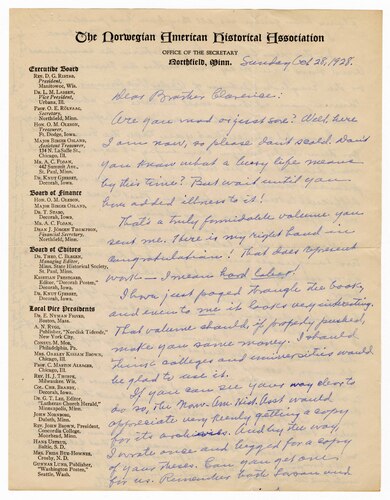 The Norwegian American Historical Association
OFFICE OF THE SECRETARY
Northfield, Minn.
Sunday Oct 28, 1928.
Executive Board
REV. D. G. RISTAD,
President,
Manitowoc, Wis.
DR. L. M. LARSEN,
Vice President,
Urbana, Ill.
PROF. O. E. RÖLVAAG,
Secretary,
Northfield, Minn.
HON. O. M. OLESON,
Treasurer,
Ft. Dodge, Iowa.
MAJOR BIRGER OSLAND,
Assistant Treasurer,
134 N. LaSalle St.,
Chicago, Ill.
MR. A. C. FLOAN,
442 Summit Ave.,
St. Paul, Minn.
DR. KNUT GJERSET,
Decorah, Iowa.
Board of Finance
HON. O. M. OLESON,
MAJOR BIRGER OSLAND,
DR. T. STABO,
Decorah, Iowa.
MR. A. C. FLOAN,
DEAN J. JÖRGEN THOMPSON,
Financial Secretary,
Northfield, Minn.
Board of Editors
DR. THEO. C. BLEGEN,
Managing Editor,
Minn. State Historical Society,
St. Paul, Minn.
KRISTIAN PRESTGARD,
Editor, "Decorah Posten,"
Decorah, Iowa.
DR. KNUT GJERSET,
Decorah, Iowa.
Local Vice Presidents
Boston, Mass.
A. N. RYGG,
Publisher, "Nordisk Tidende,"
New York City.
Philadelphia, Pa.
Chicago, Ill.
PROF. C. MARTIN ALSAGER,
Chicago, Ill.
REV. H. J. THORPE,
Milwaukee, Wis.
COL. CHR. BRANDT,
Decorah, Iowa.
DR. G. T. LEE, Editor,
"Lutheran Church Herald,"
Minneapolis, Minn.
Duluth, Minn.
REV. JOHN BROWN, President,
Concordia College,
Moorhead, Minn.
HANS
Baltic, S. D.
Crosby, N. D.
GUNNAR LUND, Publisher,
"Washington Posten,"
Seattle, Wash.
Dear Brother Clarence:
Are you mad or just sore? Well, here
I am now, so please don't scold. Don't
you know what a busy life means
by this time? But wait until you
have added illness to it!
That's a truly formidable volume you
sent me. There is my right hand in
congratulations! That does represent
work — I mean hard labor!
I have just paged through the book,
and even to me it looks very interesting.
That volume should, if properly pushed,
make you some money. I should
think colleges and universities would
be glad to use it.
If you can see your way clear to
do so, the Now. Am. Hist. Asst would
appreciate very keenly getting a copy
for its archives. And by the way,
I wrote once and begged for a copy
of your thesis. Can you get one
for us. Remember both Larson and